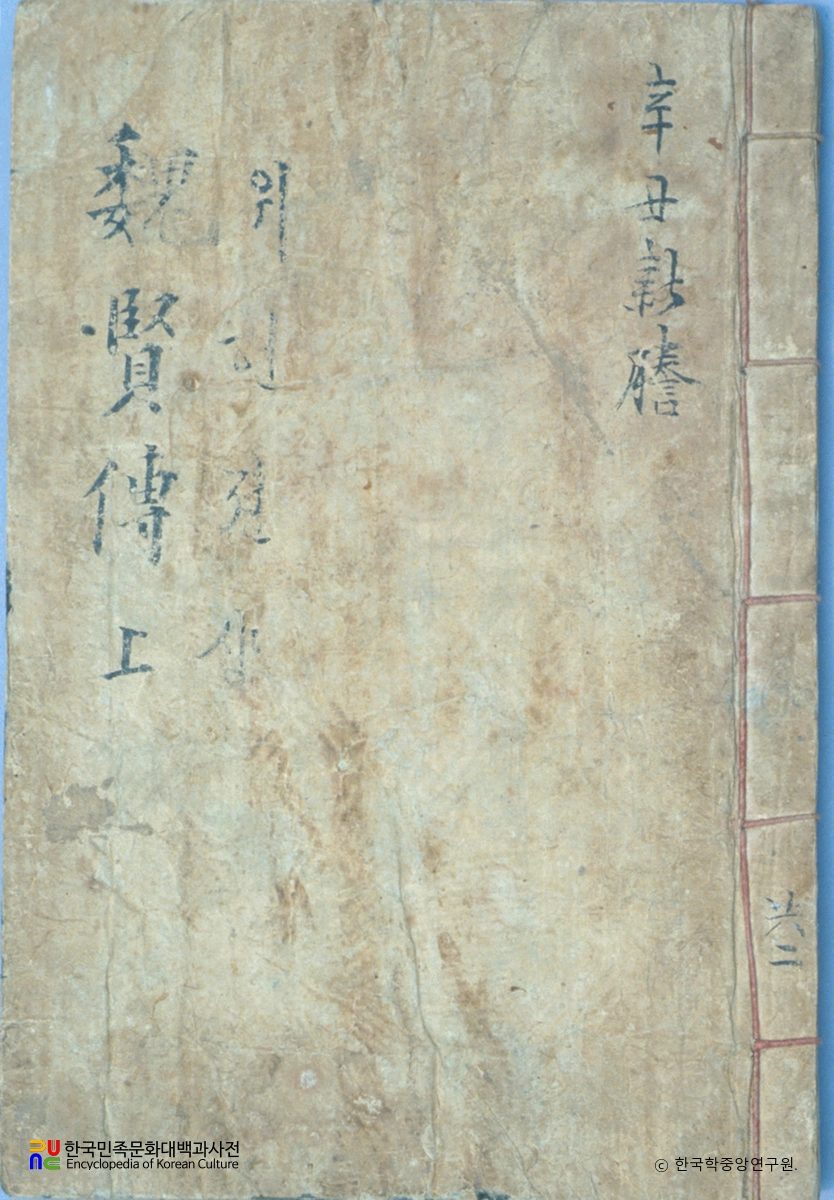 共二
辛丑新謄
위현젼상
魏賢傳 上
한국민족문화대백과사전
Encyclopedia of Korean Culture
ⓒ 한국학중앙연구원.